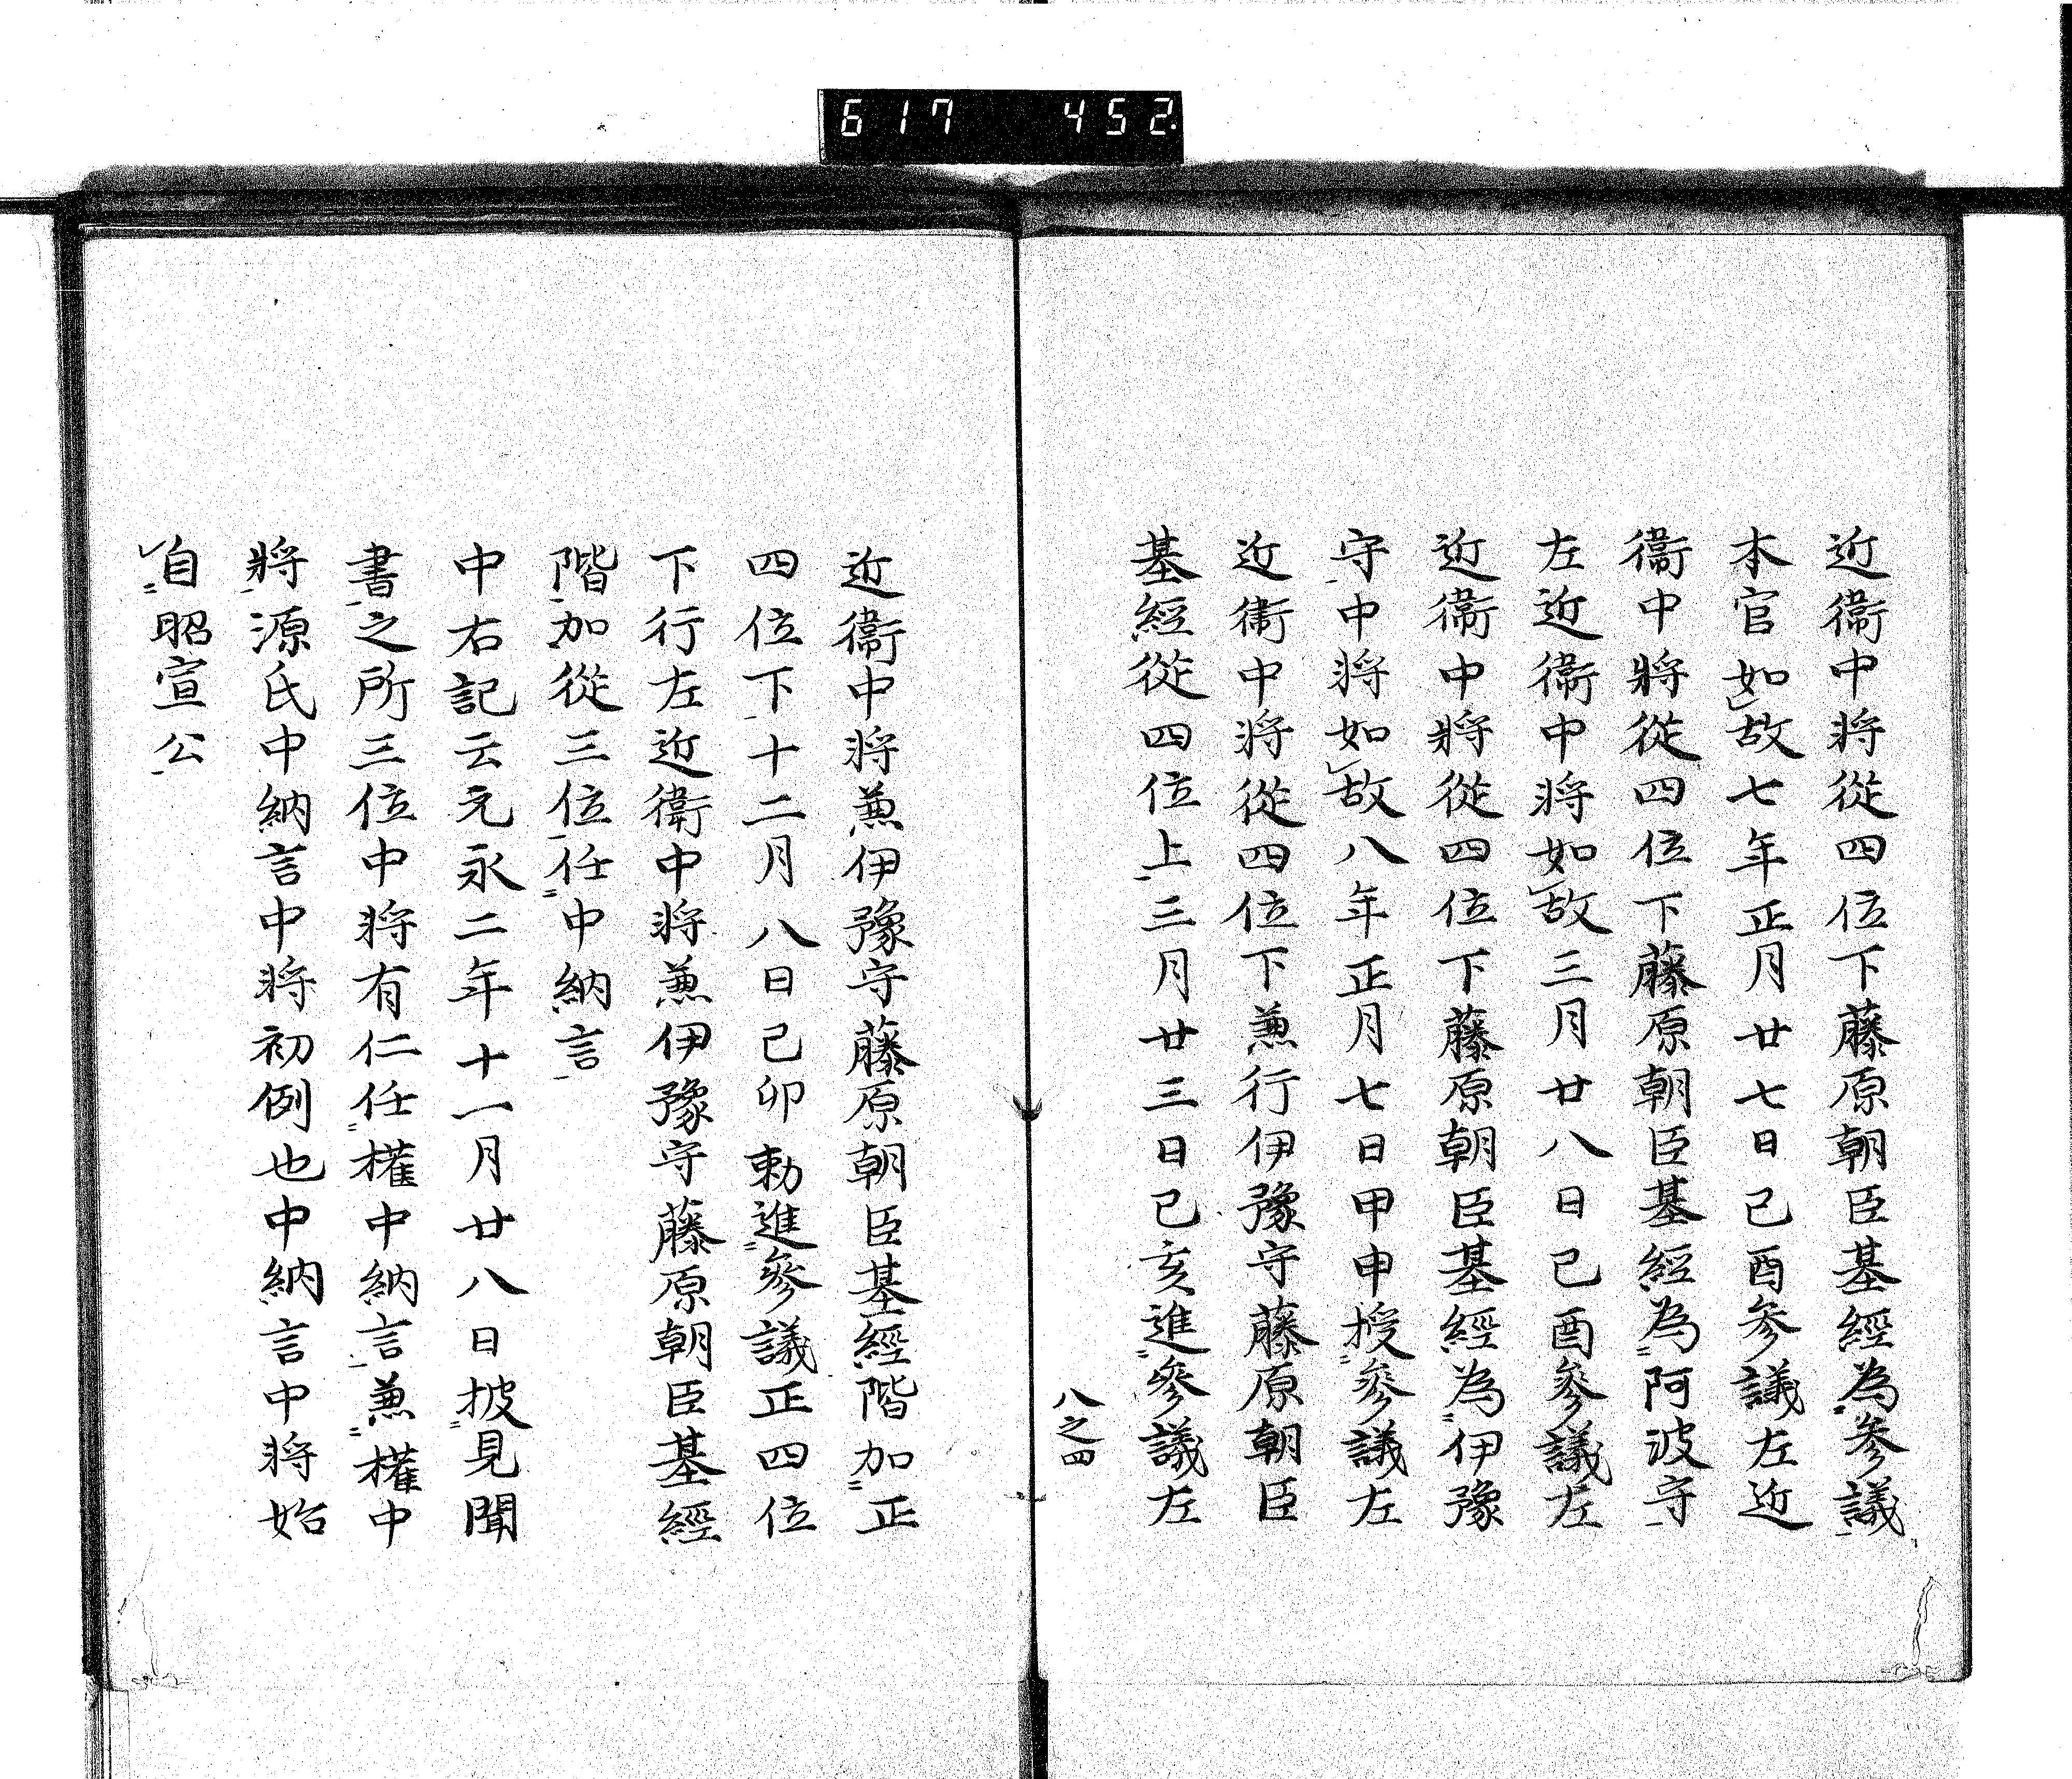 617 452
近衞中将從四位下藤原朝臣基經為參議
本官如故七年正月廿七日己酉参議左近
衞中将從四位下藤原朝臣基經為阿波守
左近衞中将如故三月廿八日己酉參議左
近衞中将從四位下藤原朝臣基經為伊豫
守中将如故八年正月七日甲申授參議左
近衞中将從四位下兼行伊豫守藤原朝臣
基經從四位上三月廿三日己亥進參議左
八之四
近衞中将兼伊豫守藤原朝臣基經階加正
四位下十二月八日己卯勅進參議正四位
下行左近衛中将兼伊豫守藤原朝臣基經
階加從三位任中納言
中右記云元永二年十一月廿八日披見聞
書之所三位中将有仁任權中納言兼權中
将源氏中納言中将初例也中納言中将始
自昭宣公